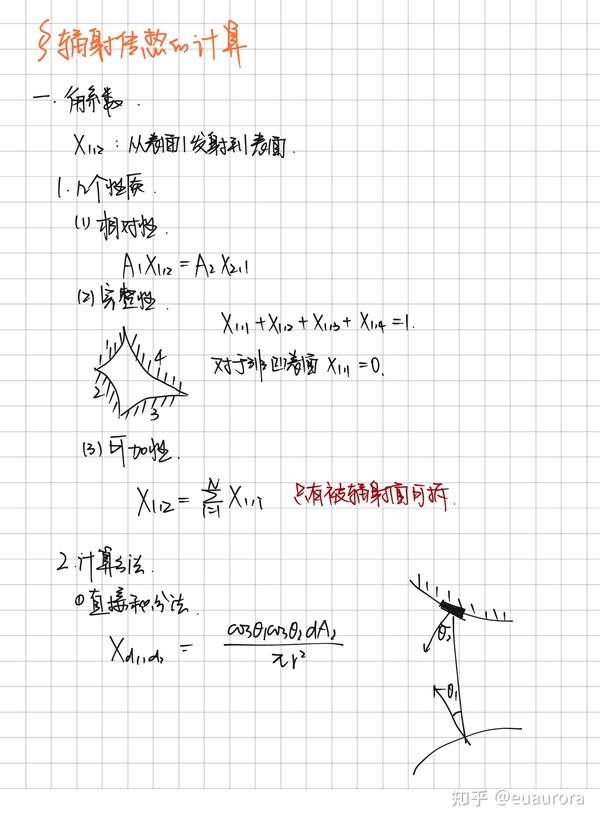 §辐射传热的计算
一. 角系数.
X1,2 : 从表面1发射到表面.
1. 几个性质.
(1) 相对性.
A1X1,2 = A2X2,1
(2) 完整性.
X1,1 + X1,2 + X1,3 + X1,4 = 1.
对于非凹表面 X1,1 = 0.
4
2
3
(3) 可加性.
X1,2 = Σ_{i=1}^{N} X1,i 只有被辐射面可拆.
2. 计算方法.
① 直接积分法.
Xd1,d2 = cosθ1cosθ2dA2 / πr²
θ2
θ1
知乎 @euaurora